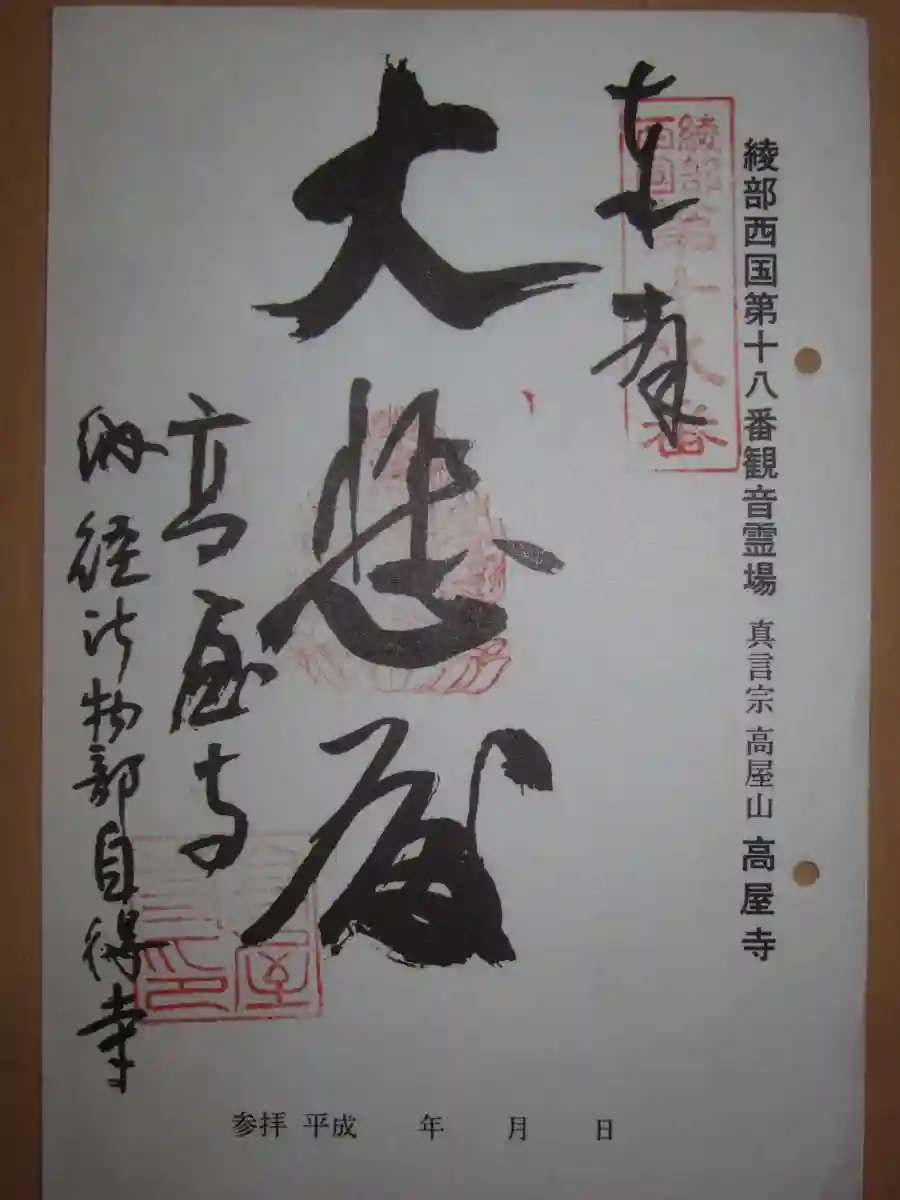 綾部西国第十八番観音霊場 真言宗 高屋山 高屋寺
奉拝
綾部
西国
第十八番
大悲殿
高屋寺
納経所物部自得寺
参拝 平成 年 月 日